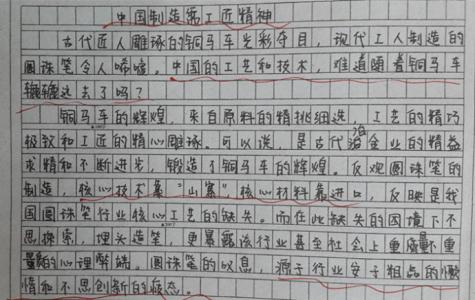 中国制造需工匠精神
古代匠人雕琢的铜马车光彩夺目，现代工人制造的
圆珠笔令人唏嘘。中国的工艺和技术，难道随着铜马车
辘辘远去了吗？
铜马车的辉煌，来自原料的精挑细选，工艺的精巧
极致和工匠的精心雕琢。可以说，是古代冶金业的精益
求精和不断进步，锻造了铜马车的辉煌。反观圆珠笔的
制造，核心技术靠“山寨”，核心材料靠进口，反映是我
国圆珠笔行业核心工艺的缺失。而在此缺失的困境下不
思探索，埋头造笔，更暴露该行业甚至社会上重量不重
质的心理弊端。圆珠笔的叹息，源于行业安于粗品的
惰和不思创新的疲态。